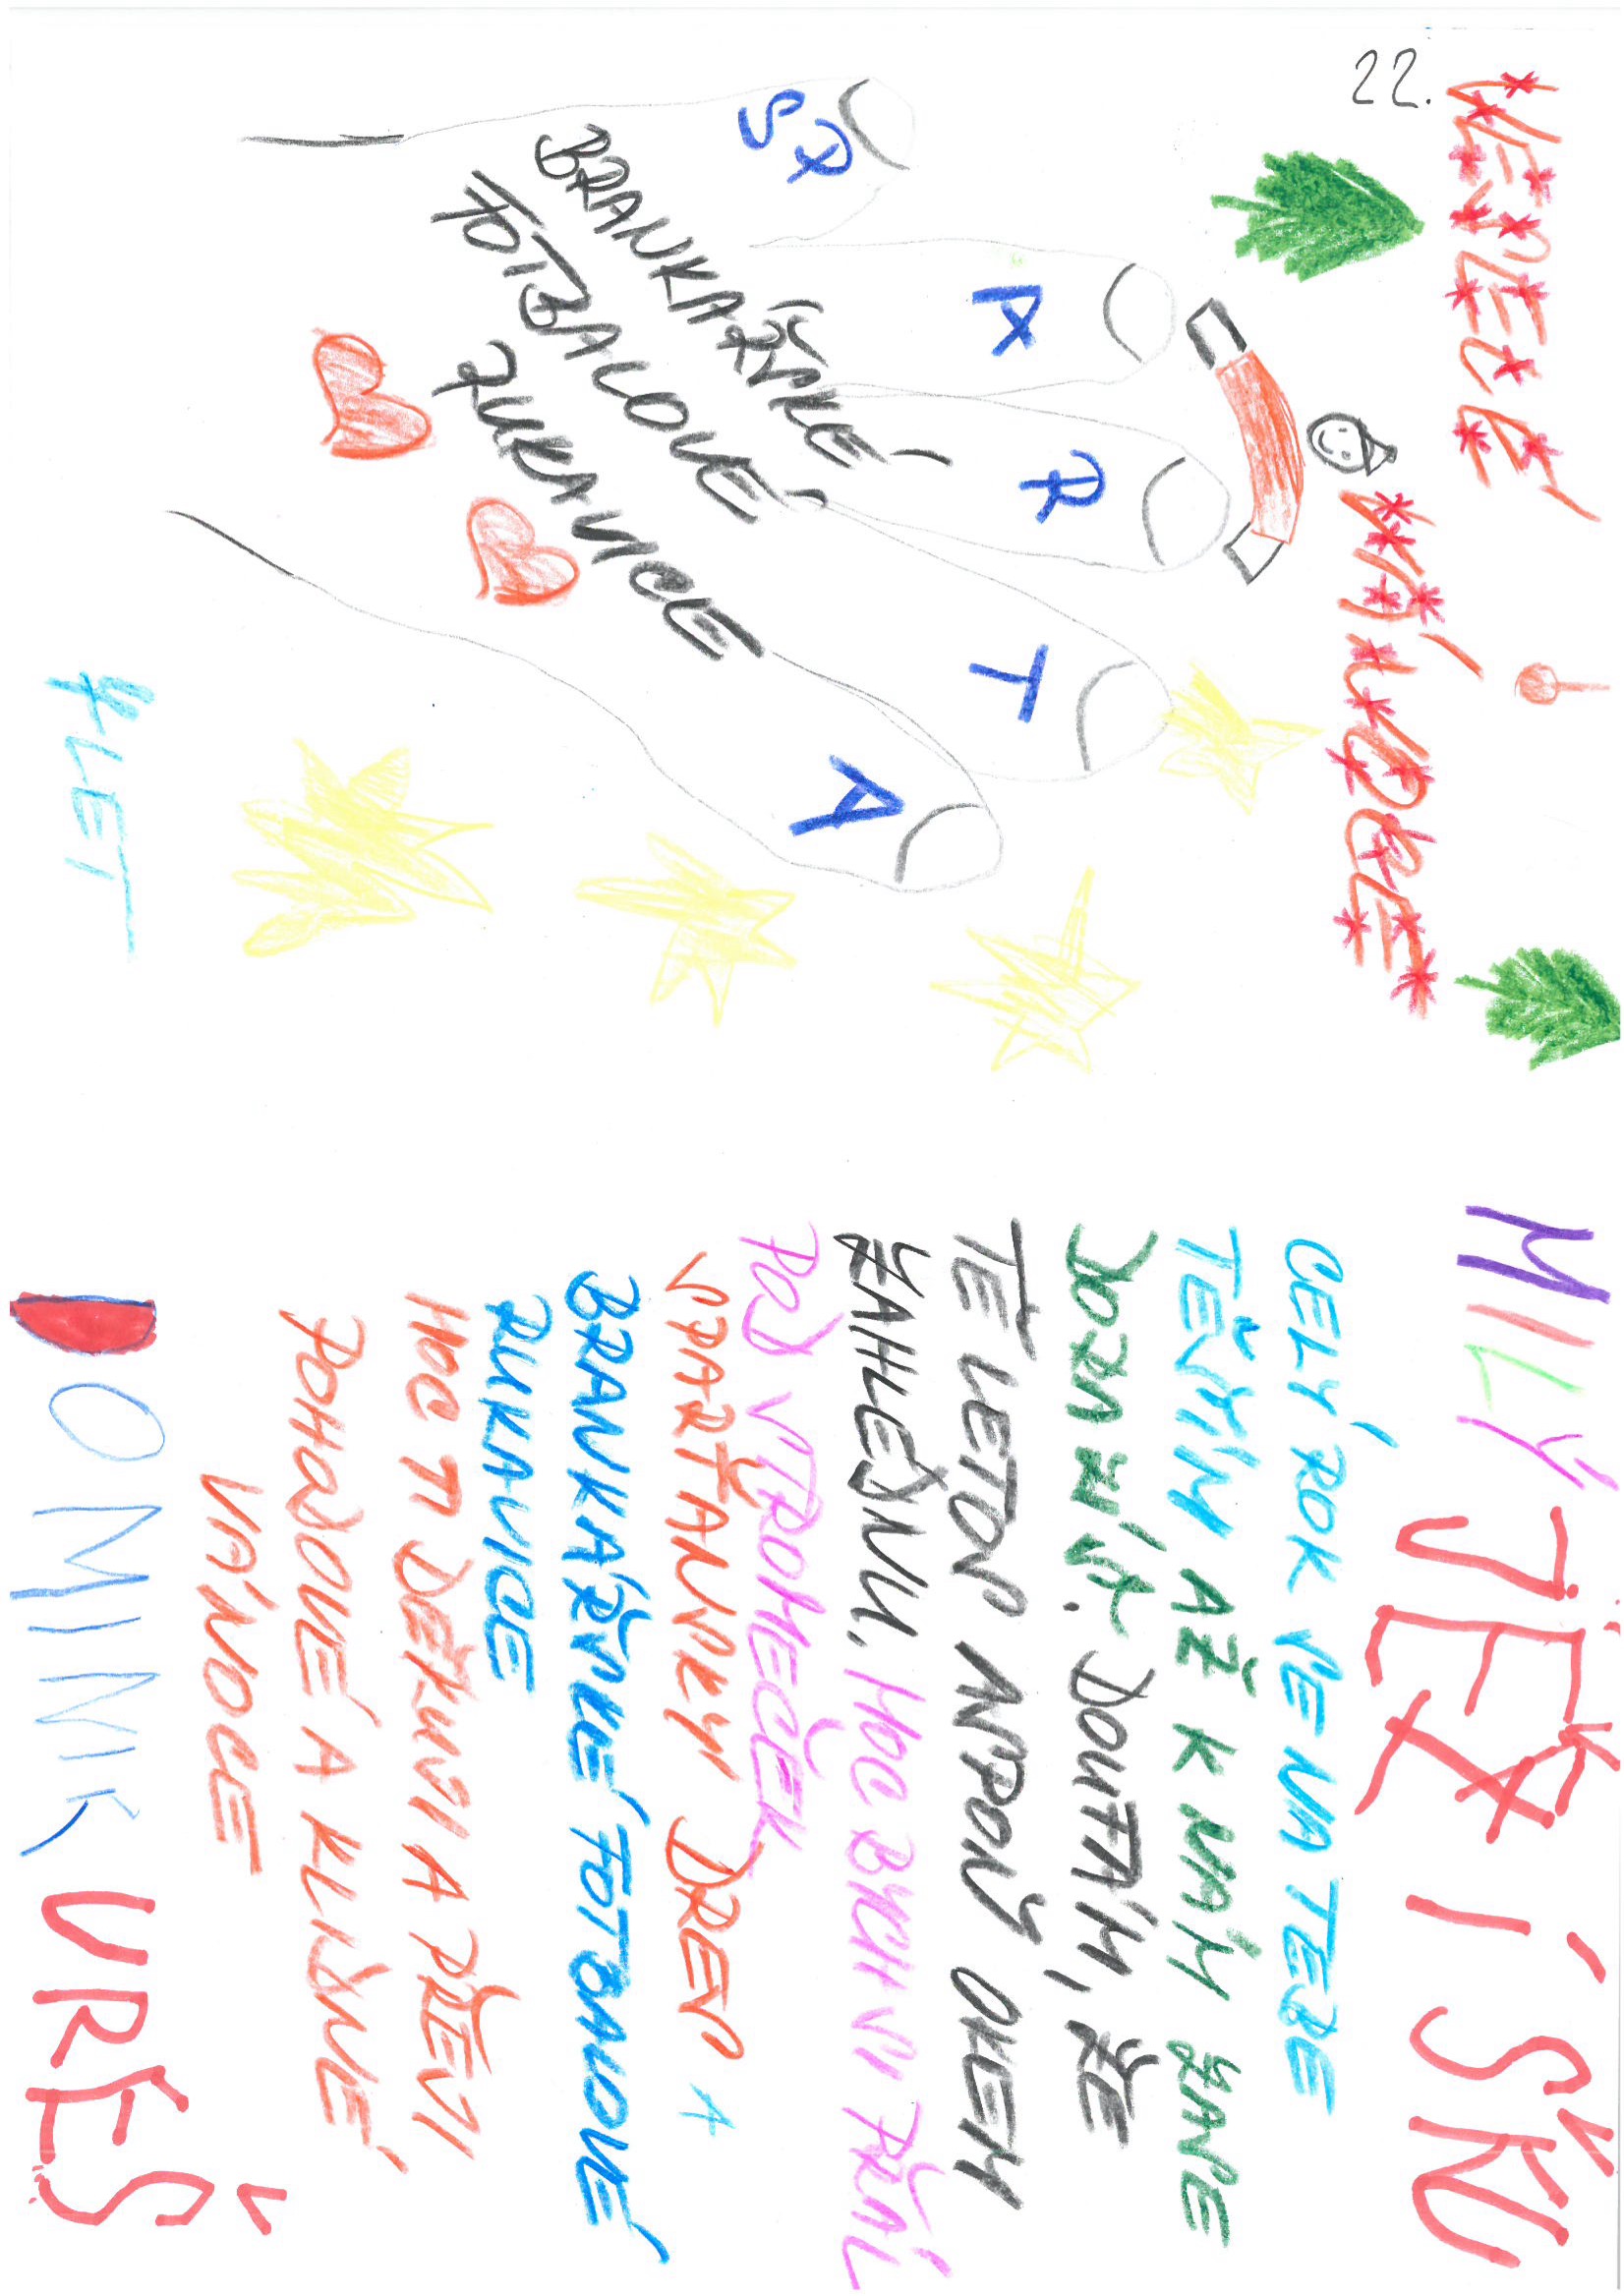 22.
VESELÉ
VÁNOCE
SP A R T A
BRANKÁŘSKÉ
FOTBALOVÉ
RUKAVICE
LET
MILY JEŽÍŠKU
CELÝ ROK SE NA TEBE
TĚŠÍM AŽ K NÁM ZASE
DORAZÍŠ. DOUFÁM, ŽE
TĚ LETOS ASPOŇ OKEM
ZAHLEDNU. MOC BYCH SI PŘÁL
POD STROMEČEK
SPARŤANSKÝ DRES A
BRANKÁŘSKÉ FOTBALOVÉ
RUKAVICE
MOC TI DĚKUJI A PŘEJI
POHODOVÉ A KLIDNÉ
VÁNOCE
DOMINIK UREŠ